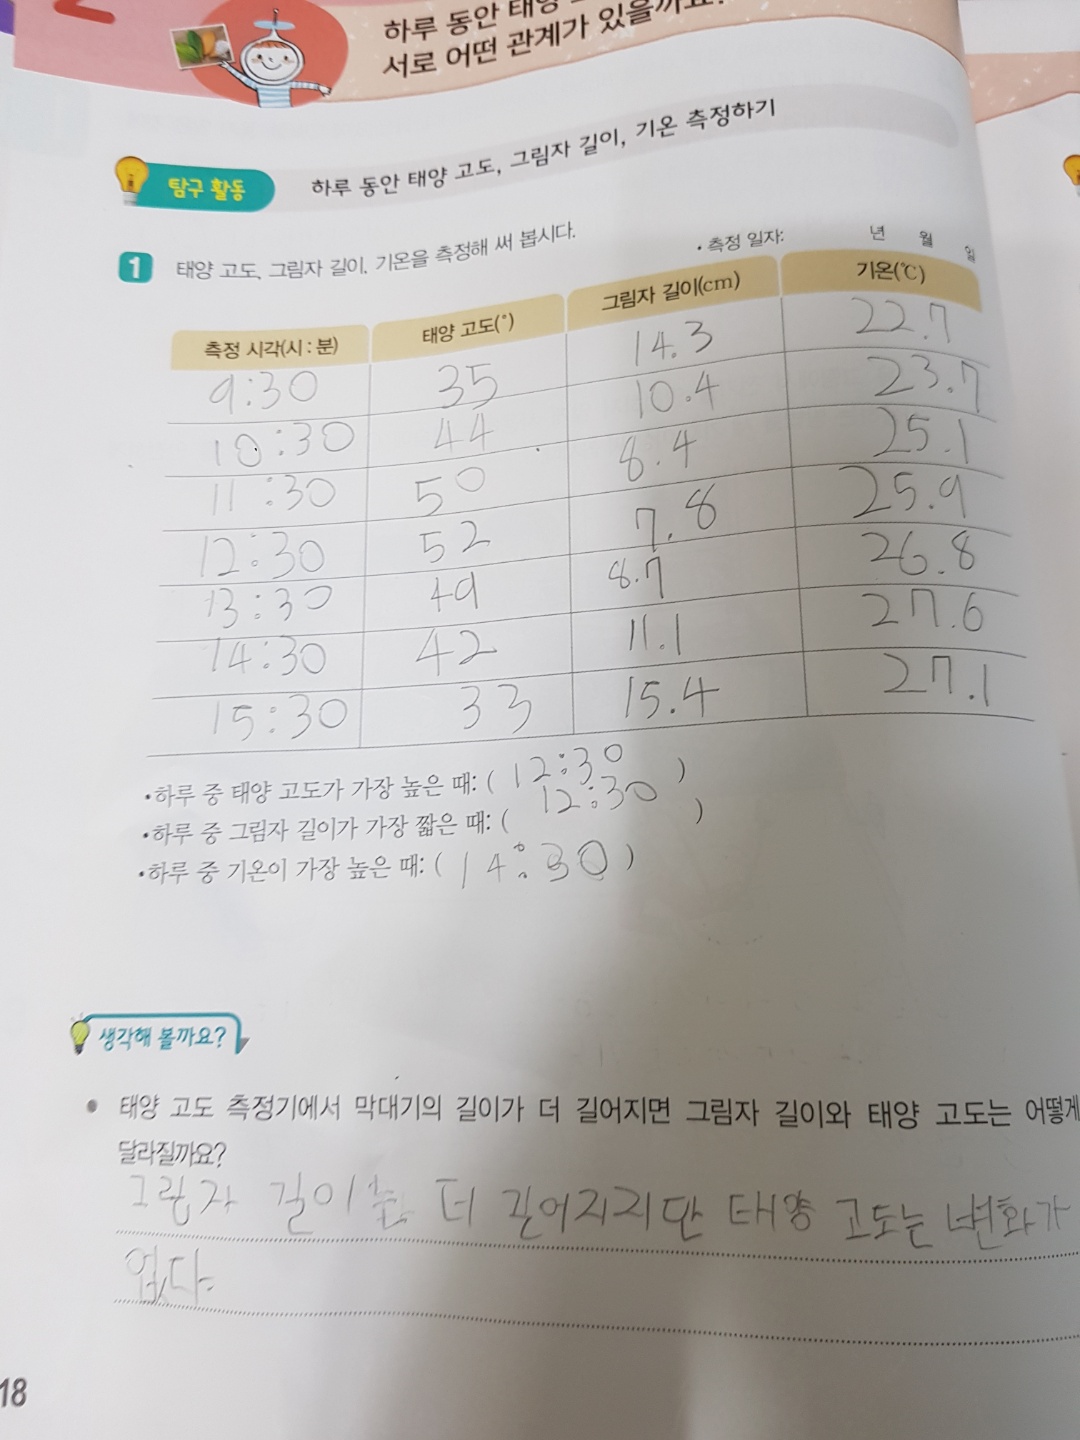 하루 동안 태양
서로 어떤 관계가 있을까요?
탐구 활동 하루 동안 태양 고도, 그림자 길이, 기온 측정하기
1 태양 고도, 그림자 길이, 기온을 측정해 써 봅시다.
• 측정 일자: 년 월 일
측정 시각(시 : 분) 태양 고도(°) 그림자 길이(cm) 기온(℃)
9:30 35 14.3 22.7
10:30 44 10.4 23.7
11:30 50 8.4 25.1
12:30 52 7.8 25.9
13:30 49 8.7 26.8
14:30 42 11.1 27.6
15:30 33 15.4 27.1
•하루 중 태양 고도가 가장 높은 때: ( 12:30 )
•하루 중 그림자 길이가 가장 짧은 때: ( 12:30 )
•하루 중 기온이 가장 높은 때: ( 14:30 )
생각해 볼까요?
• 태양 고도 측정기에서 막대기의 길이가 더 길어지면 그림자 길이와 태양 고도는 어떻게
달라질까요?
그림자 길이는 더 길어지지만 태양 고도는 변화가
없다.
18